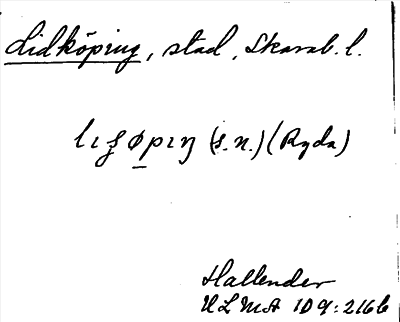 Lidköping, stad, Skarab. l.
lɩʒøpɩŋ (s.n.) (Ryda)
Hallender
ULMA 109:216b